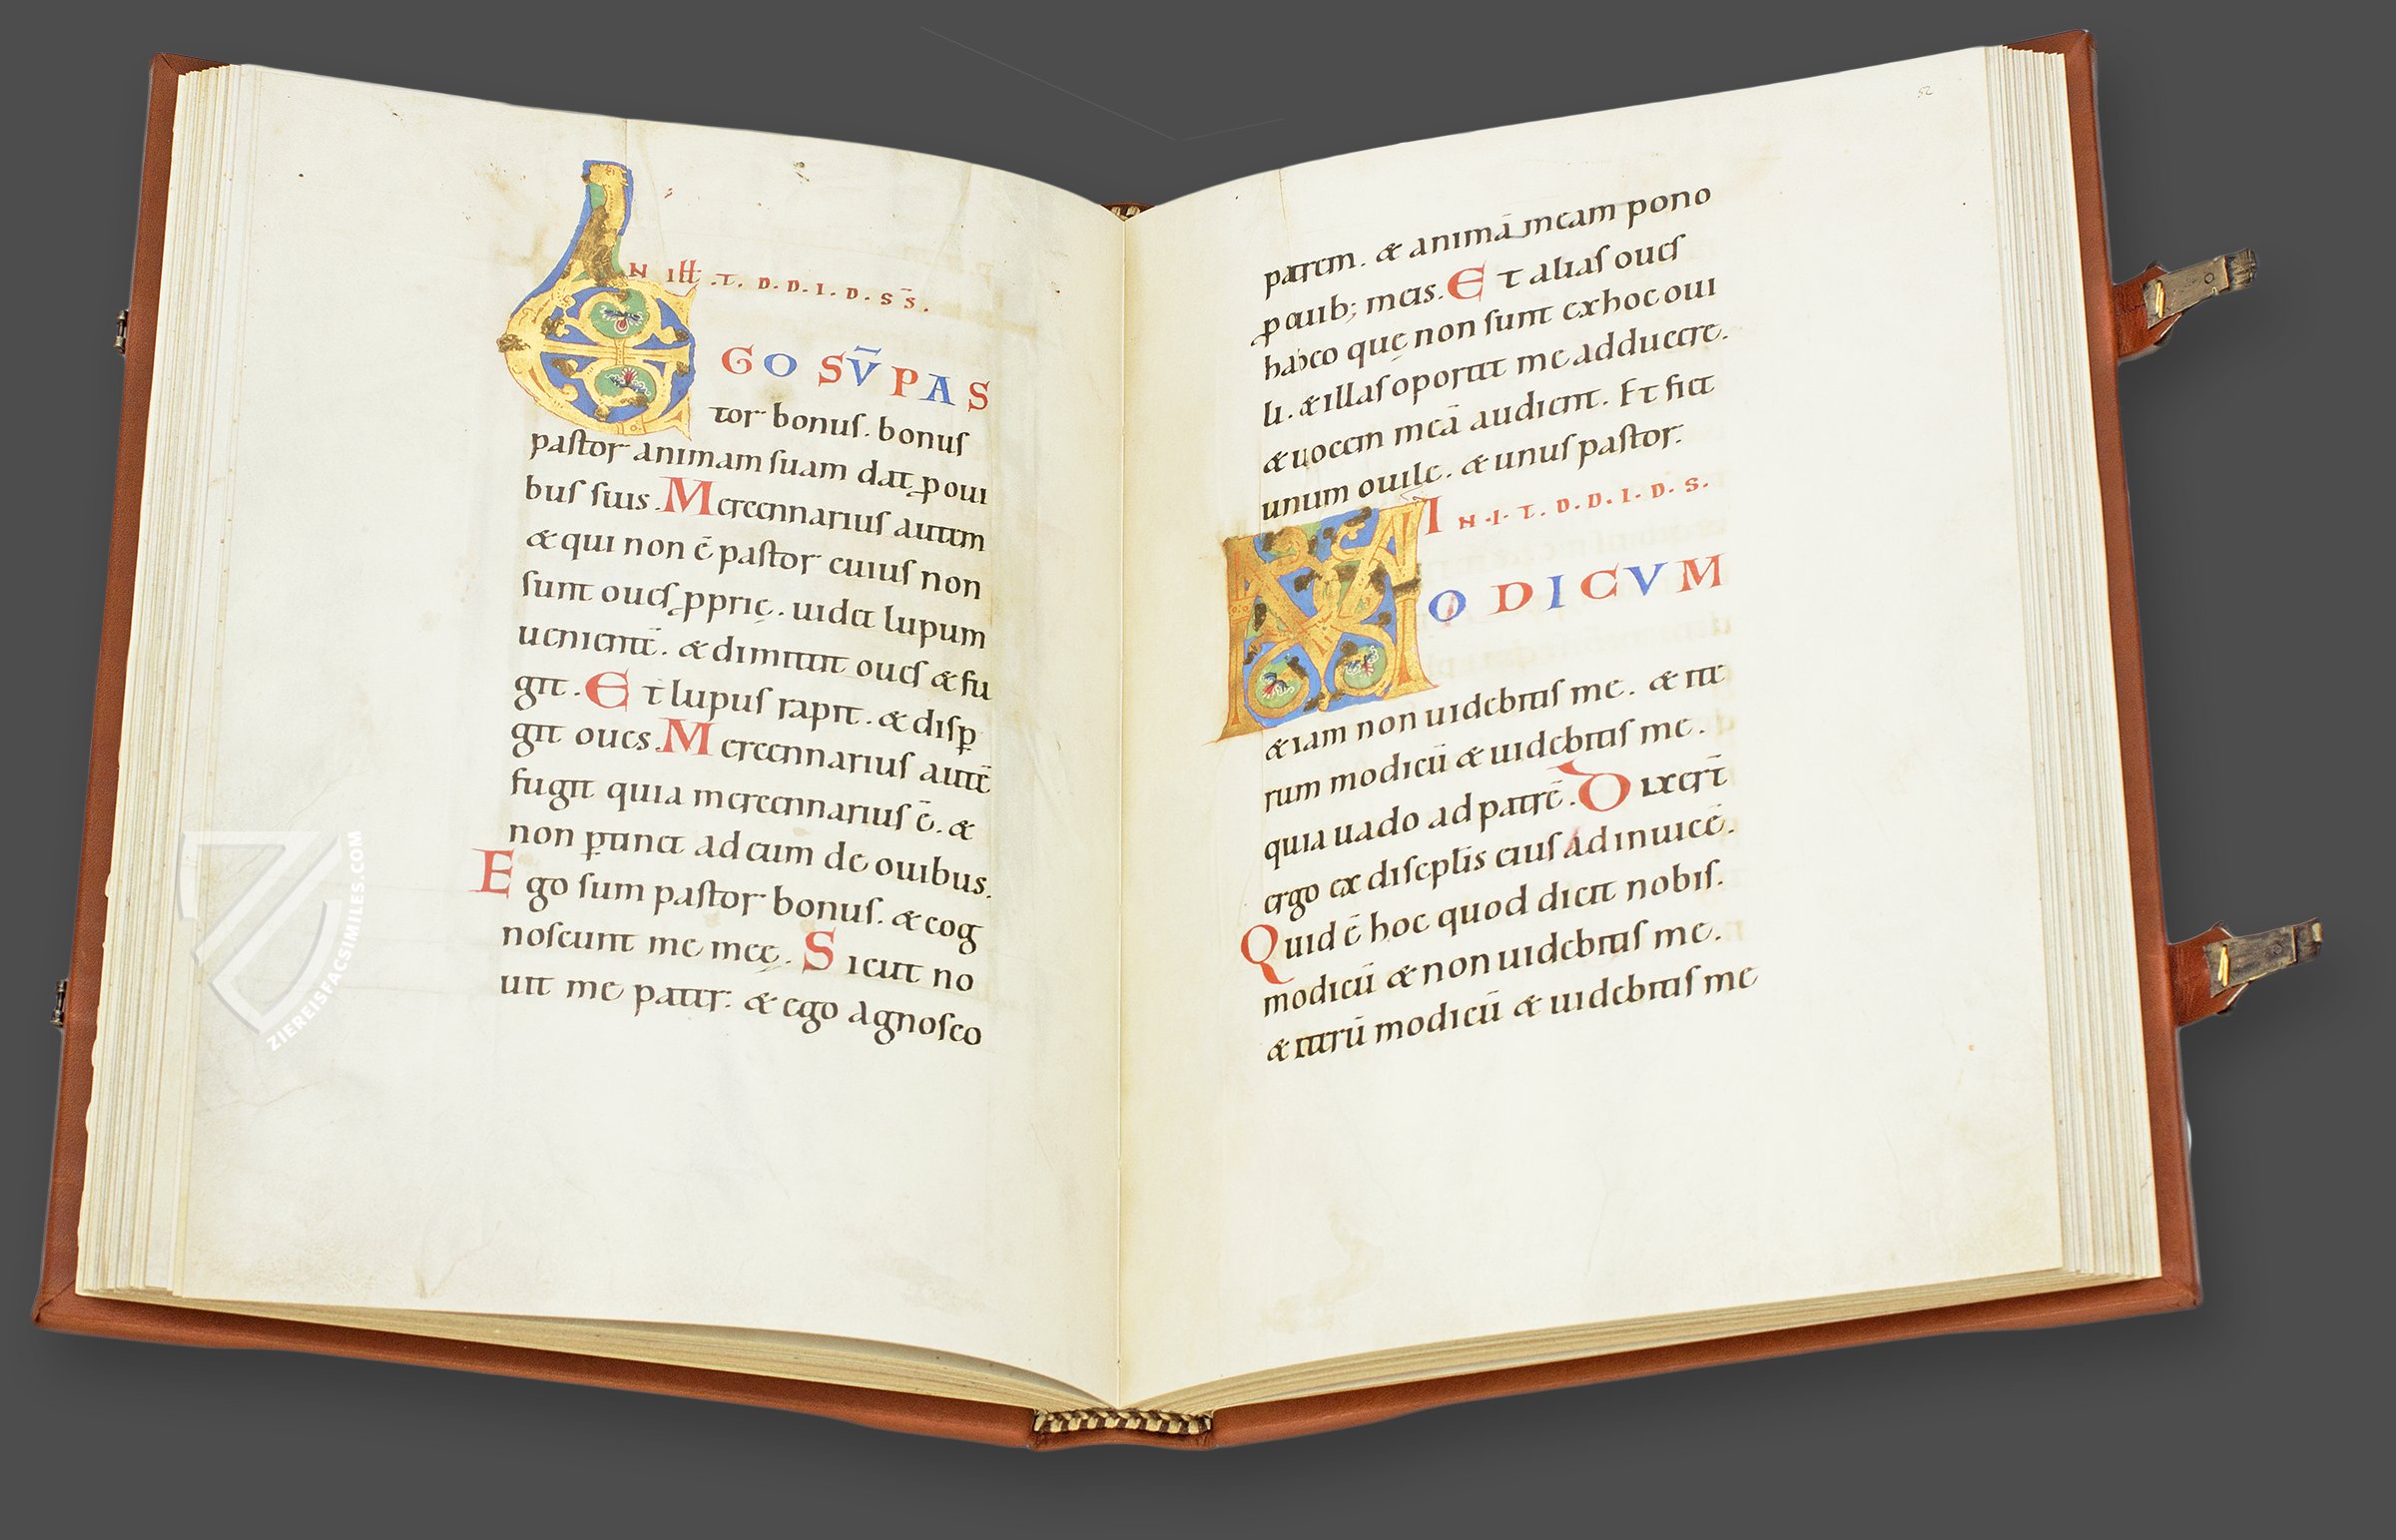 IN ILL. T. D. D. I. D. S S̄.
EGO SV̄ PAS
tor bonus. bonus
pastor animam suam dat ꝓ oui
bus suis. Mercennarius autem
& qui non ē pastor cuius non
sunt oues ꝓprię. uidet lupum
uenientē. & dimittit oues & fu
git. Et lupus rapit. & disꝑ
git oues. Mercennarius autē
fugit quia mercennarius ē. &
non ꝑtinet ad eum de ouibus.
Ego sum pastor bonus. & cog
noscunt me meę. Sicut no
uit me pater. & ego agnosco
52
patrem. & animā meam pono
ꝓ ouib; meis. Et alias oues
habeo quę non sunt ex hoc oui
li. & illas oportet me adducere.
& uocem meā audient. Et fiet
unum ouile. & unus pastor.
IN . I. T. D. D. I. D. S.
MODICVM
& iam non uidebitis me. & ite
rum modicū & uidebitis me.
quia uado ad patrē. Dixert̄
ergo ex discipl̄is eius ad inuicē.
Quid ē hoc quod dicit nobis.
modicū & non uidebitis me.
& iterū modicū & uidebitis me
ZIEREISFACSIMILES.COM